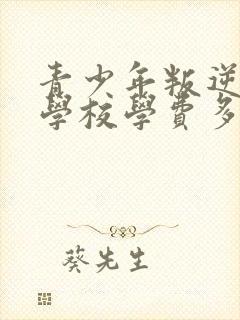 青少年叛逆
學校學費多
葵先生